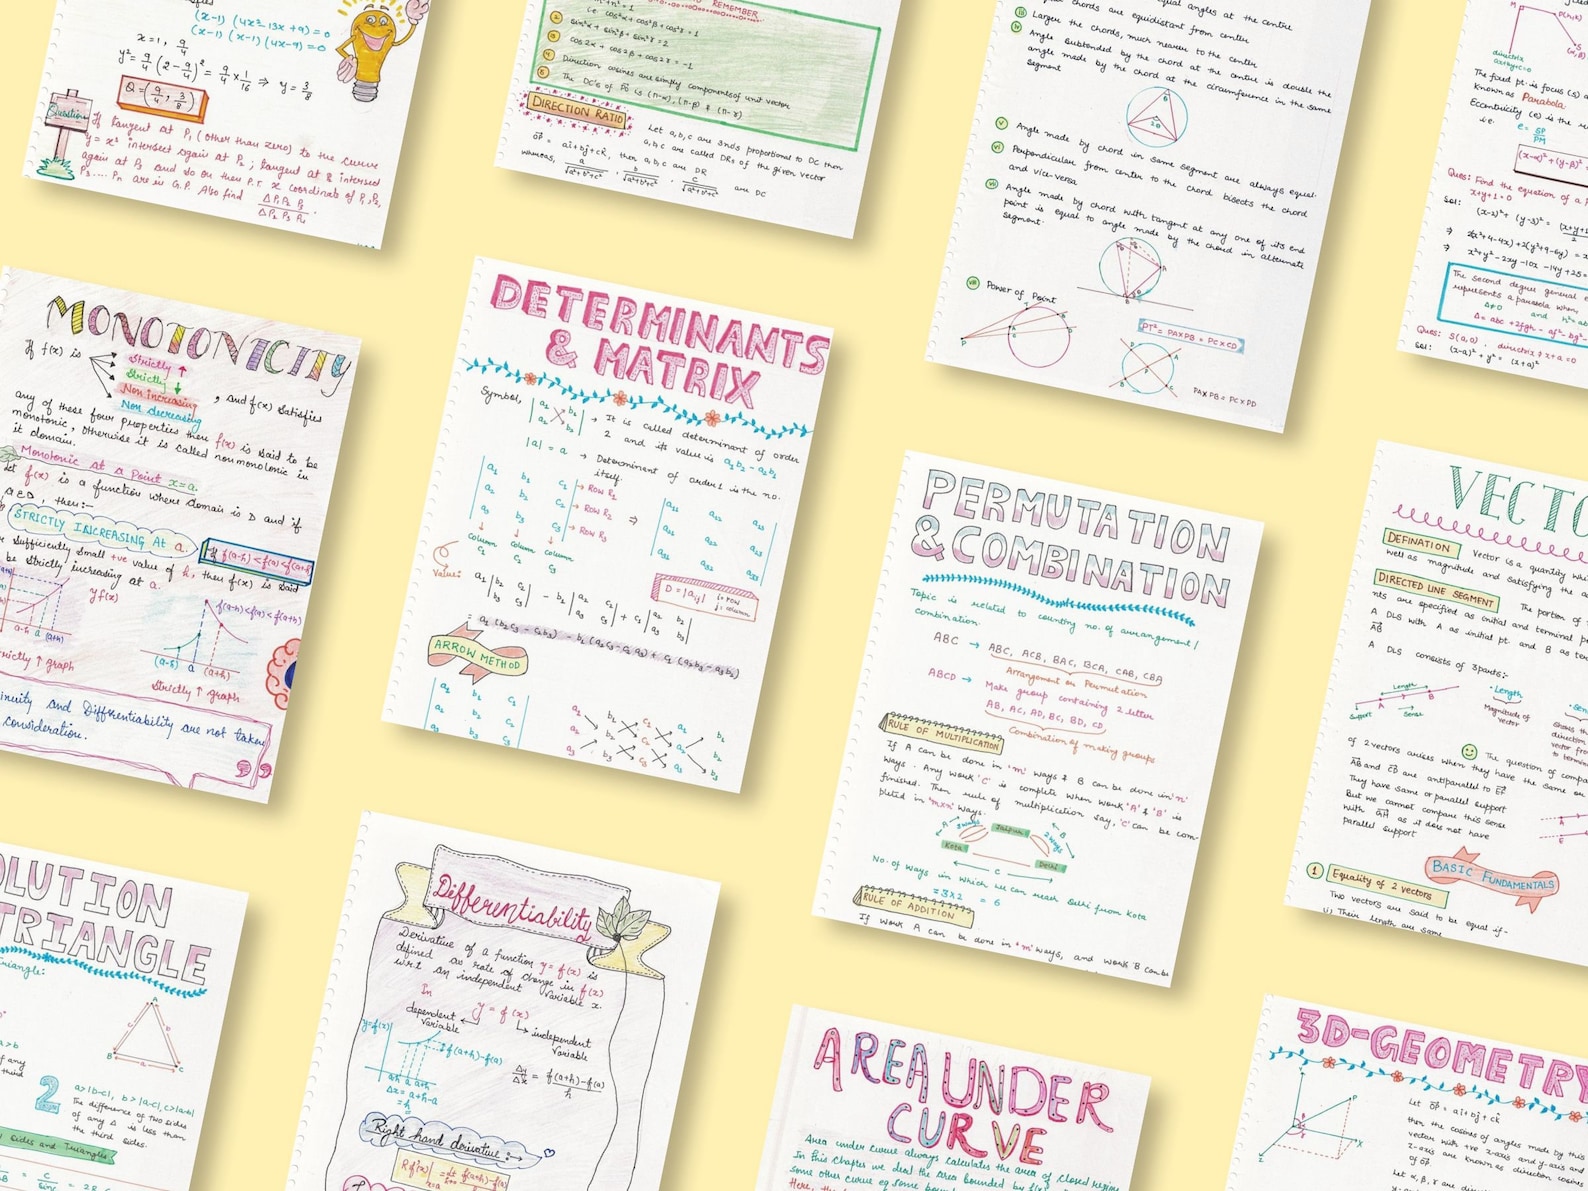 (x-1) (4x²-13x+9) = 0
(x-1) (x-1) (4x-9) = 0
x = 1, 9/4
y² = 9/4 (2 - 9/4)² = 9/4 × 1/16 ⇒ y = 3/8
Q = (9/4, 3/8)
Question
If tangent at P₁ (other than zero) to the curve
y = x³ intersect again at P₂; tangent at P₂ intersect
again at P₃ and so on then P.T. x coordinates of P₁, P₂,
P₃.... Pn are in G.P. Also find ΔP₁P₂P₃ / ΔP₂P₃P₄ .
REMEMBER
i.e. cos²α + cos²β + cos²γ = 1
2 sin²α + sin²β + sin²γ = 2
3 cos2α + cos2β + cos2γ = -1
4 Direction cosines are simply components of unit vector
5 The DC's of are (π-α), (π-β) & (π-γ)
DIRECTION RATIO
Let a, b, c are 3 nos proportional to DC then
a, b, c are called DRs of the given vector
= ai + bj + ck, then a, b, c are DR
whereas, a/√a²+b²+c² , b/√a²+b²+c² , c/√a²+b²+c² are DC
equal angles at the centre
iii chords are equidistant from center
iv Larger the chords, much nearer to the center
Angle subtended by the chord at the centre is double the
angle made by the chord at the circumference in the same
segment
θ
2θ
v Angle made by chord in same segment are always equal
vi Perpendicular from center to the chord bisects the chord
and vice-versa
vii Angle made by chord with tangent at any one of its end
point is equal to angle made by the chord in alternate
segment.
viii Power of Point
PT² = PA×PB = PC×CD
PA×PB = PC×PD
M
directrix
The fixed pt. is focus (s) a
known as Parabola
Eccentricity (e) is the
i.e. e = SP/PM
(x-α)² + (y-β)²
Ques: Find the equation of a
x+y+1=0
Sol:
(x-2)² + (y-3)² = (x+y+1
x²+y²-2xy-10x-14y+25=
The second degree general
represents a parabola when,
Δ≠0 and h²=ab
Δ = abc + 2fgh - af² - bg²
Ques: S(a,0), directrix x+a=0
Sol: (x-a)² + y² = (x+a)²
MONOTONICITY
If f(x) is
Strictly ↑
Strictly ↓
Non increasing
Non decreasing
, and f(x) satisfies
any of these four properties then f(x) is said to be
monotonic, otherwise it is called non monotonic in
it domain.
Monotonic at a Point x=a.
Let f(x) is a function whose domain is D and if
a∈D, then:-
STRICTLY INCREASING At a.
If f(a-h)<f(a)<f(a+h
sufficiently small +ve value of h, then f(x) is said
be Strictly increasing at a.
y f(x)
a (a+h)
f(a-h)<f(a)<f(a+h)
(a-h) a (a+h)
rictly ↑ graph
Strictly ↑ graph
inuity and Differentiability are not taken
consideration.
DETERMINANTS
& MATRIX
Symbol, |a₁ b₁ a₂ b₂| → It is called determinant of order
2 and its value is a₁b₂ - a₂b₁
|a| = a → Determinent of order 1 is the no.
itself.
a₁ b₁ c₁ → Row R₁
a₂ b₂ c₂ → Row R₂
a₃ b₃ c₃ → Row R₃
⇒ a₁₁ a₁₂ a₁₃
a₂₁ a₂₂ a₂₃
a₃₁ a₃₂ a₃₃
column C₁ column C₂ column C₃
Value:
a₁ |b₂ c₂ b₃ c₃| - b₁ |a₂ c₂ a₃ c₃| + c₁ |a₂ b₂ a₃ b₃|
D = |aij| i = row j = column
= a₁ (b₂c₃ - c₂b₃) - b₁ (a₂c₃ - c₂a₃) + c₁ (a₂b₃ - a₃b₂)
ARROW METHOD
a₁ b₁ c₁
a₂ b₂ c₂
a₃ b₃ c₃
a₁ b₁ c₁ a₁ b₁
a₂ b₂ c₂ a₂ b₂
a₃ b₃ c₃ a₃ b₃
PERMUTATION
& COMBINATION
Topic is related to counting no. of arrangement /
combination.
ABC → ABC, ACB, BAC, BCA, CAB, CBA
Arrangement or Permutation
ABCD → Make group containing 2 letter
AB, AC, AD, BC, BD, CD
Combination of making groups
RULE OF MULTIPLICATION
If A can be done in 'm' ways & B can be done in 'n'
ways. Any work 'C' is complete when work 'A' & 'B' is
finished. Then rule of multiplication say, 'C' can be com-
pleted in 'm×n' ways.
A
3 ways
Jaipur
2 ways
B
Kota
Delhi
C
No. of ways in which we can reach Delhi from Kota
= 3×2 = 6
RULE OF ADDITION
If work A can be done in 'm' ways, and work 'B' can be
VECTO
DEFINATION
Vector is a quantity whi
well as magnitude and satisfying the
DIRECTED LINE SEGMENT
The portion of
nts are specified as initial and terminal p
A DLS with A as initial pt. and B as ter
AB
A DLS consists of 3 parts:-
Length
A
B
Support
Sense
Length
Magnitude of
vector
Sens
Shows th
direction
vector fro
to termin
The question of compa
of 2 vectors arises when they have the same or
AB and CD are antiparallel to EF
They have same or parallel support
But we cannot compare this sense
with GH as it does not have
parallel support
BASIC FUNDAMENTALS
1 Equality of 2 vectors
Two vectors are said to be equal if-
i) Their length are same
OLUTION
TRIANGLE
Triangle:
A
B
C
a
b
c
a > b
of any
third
2
a > |b-c|, b > |a-c|, c > |a-b|
The difference of two sides
of any Δ is less than
the third sides.
sides and Triangles
Differentiability
Derivative of a function y = f(x) is
defined as rate of change in f(x)
w.r.t an independent variable x.
In y = f(x)
dependent
variable
independent
variable
y=f(x)
f(a+h)-f(a)
Δx = a+h-a
= h
Δy/Δx = f(a+h)-f(a) / h
Right hand derivative :→
AREA UNDER
CURVE
Area under curve always calculates the area of closed region
In this chapter we deal the area bounded by
some other curve
3D-GEOMETRY
Let OP = ai + bj + ck
then the cosines of angles made by this
vector with +ve x-axis and y-axis and
z-axis are known as direction cosines
of OP
Let α, β, γ are